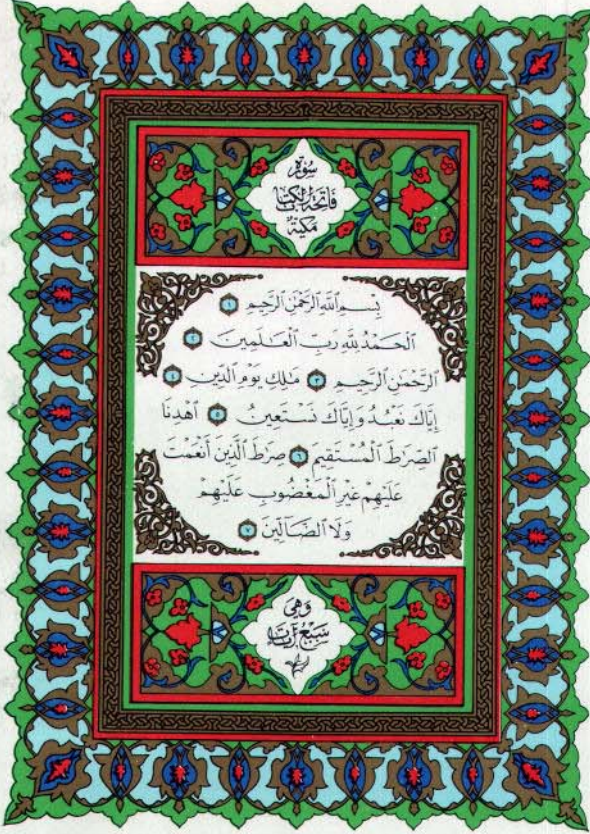 سُورَة
فَاتِحَةِ الكِتَابِ
مَكِّيَّةٌ
بِسْمِ ٱللَّهِ ٱلرَّحْمَٰنِ ٱلرَّحِيمِ ١
ٱلْحَمْدُ لِلَّهِ رَبِّ ٱلْعَٰلَمِينَ ٢
ٱلرَّحْمَٰنِ ٱلرَّحِيمِ ٣ مَٰلِكِ يَوْمِ ٱلدِّينِ ٤
إِيَّاكَ نَعْبُدُ وَإِيَّاكَ نَسْتَعِينُ ٥ ٱهْدِنَا
ٱلصِّرَٰطَ ٱلْمُسْتَقِيمَ ٦ صِرَٰطَ ٱلَّذِينَ أَنْعَمْتَ
عَلَيْهِمْ غَيْرِ ٱلْمَغْضُوبِ عَلَيْهِمْ
وَلَا ٱلضَّآلِّينَ ٧
وَهِيَ
سَبْعُ آيَاتٍ